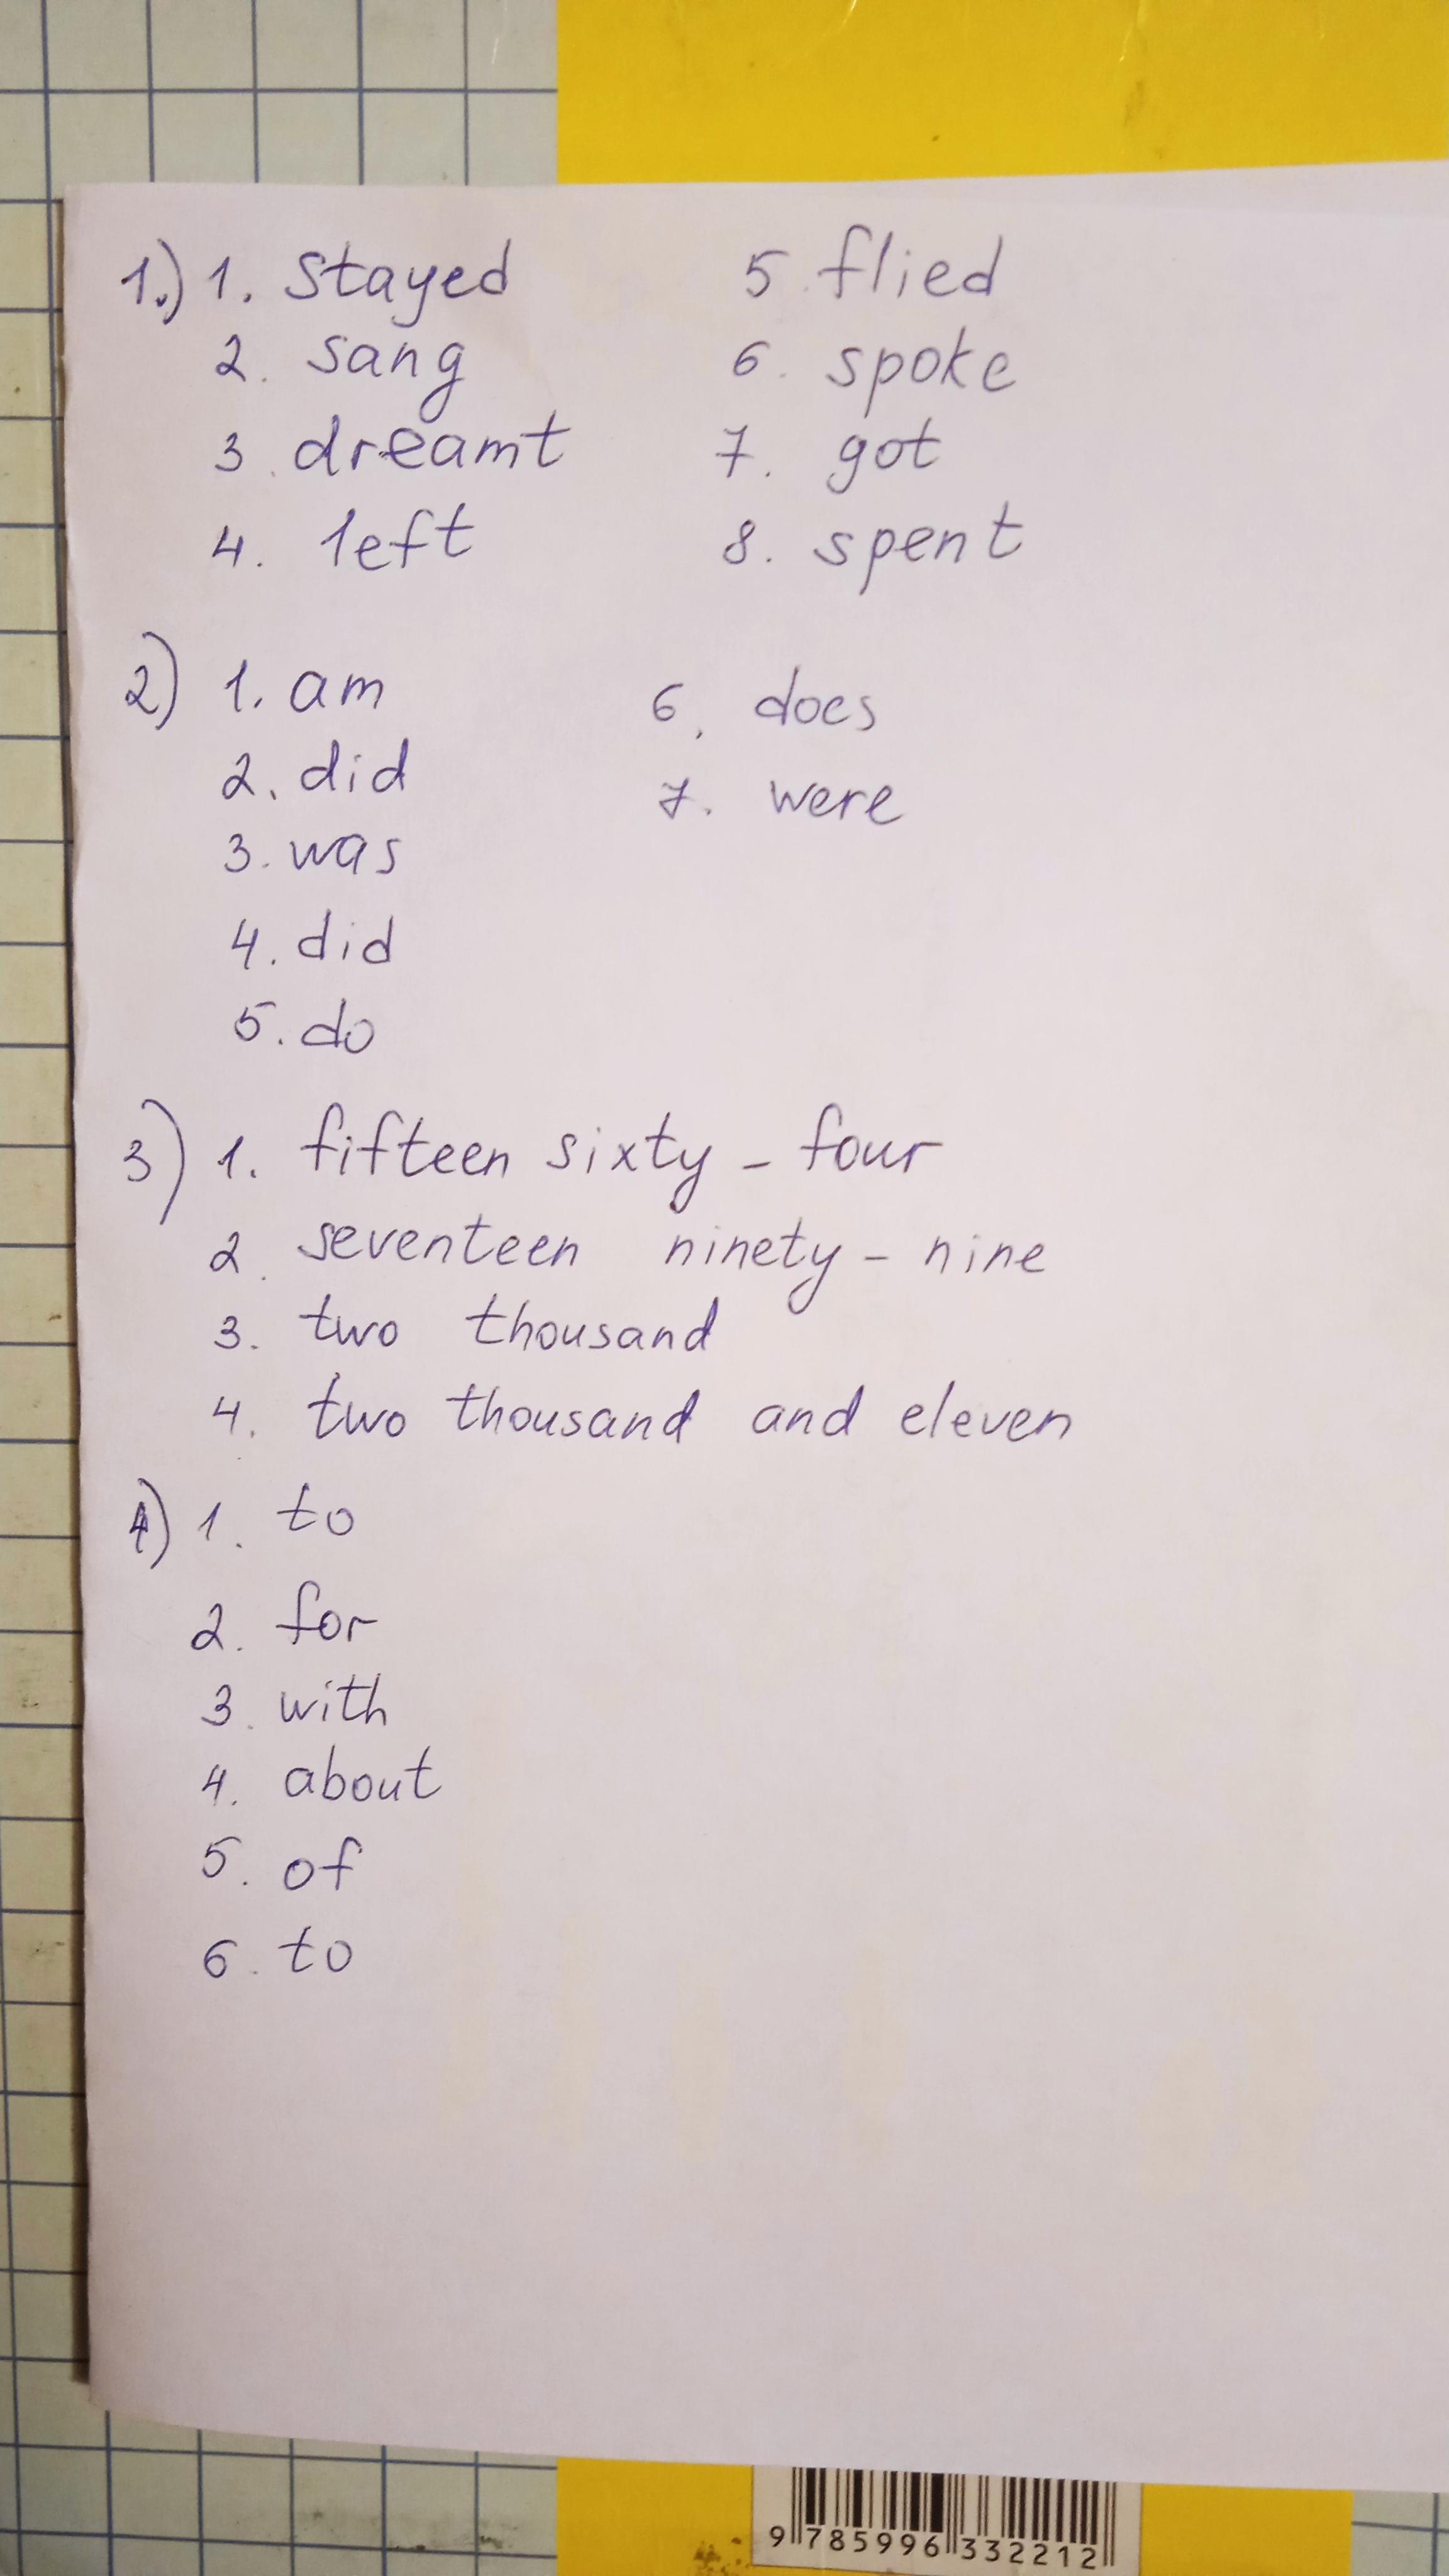 1.) 1. stayed
2. sang
3. dreamt
4. left
5. flied
6. spoke
7. got
8. spent
2) 1. am
2. did
3. was
4. did
5. do
6. does
7. were
3) 1. fifteen sixty - four
2. seventeen ninety - nine
3. two thousand
4. two thousand and eleven
4) 1. to
2. for
3. with
4. about
5. of
6. to
9 785996 332212